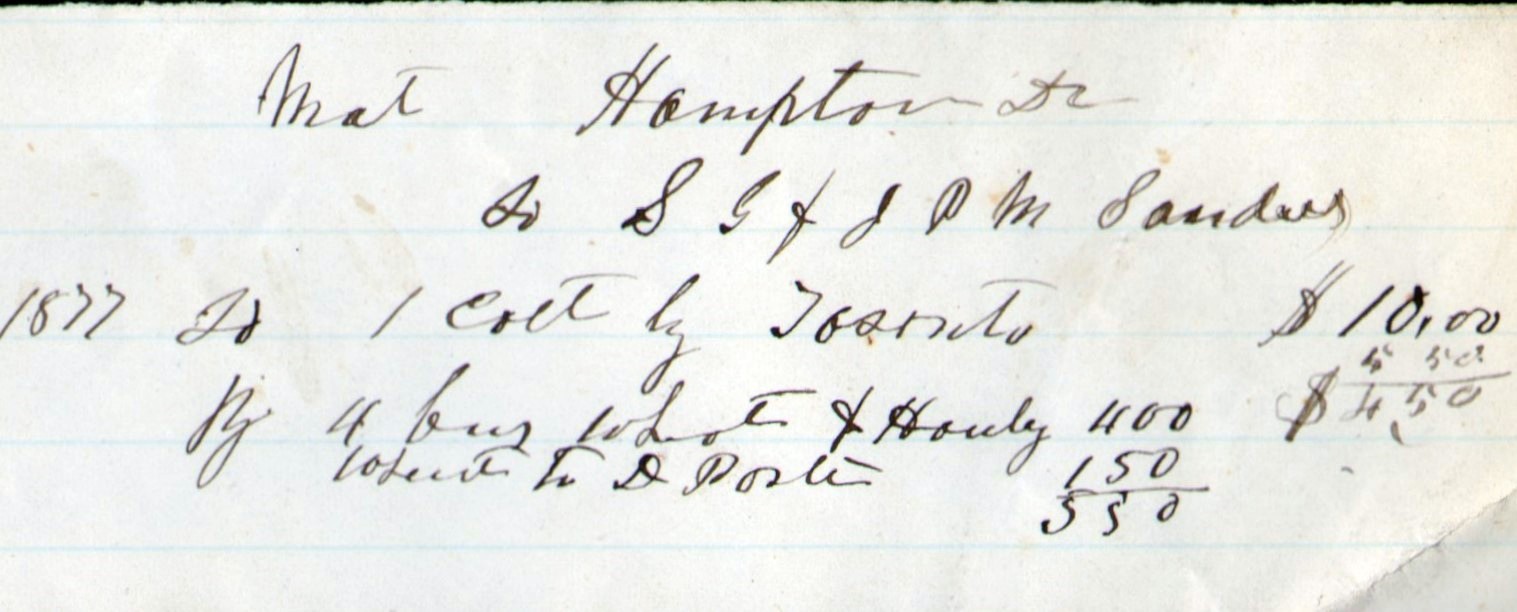 Mat Hampton Dr
To S G & J P M Sanders
1877 To 1 Colt by Toronto $10.00
5 50
By 4 bus wheat & Hauly 400 $4.50
wheat to D Porter 150
550